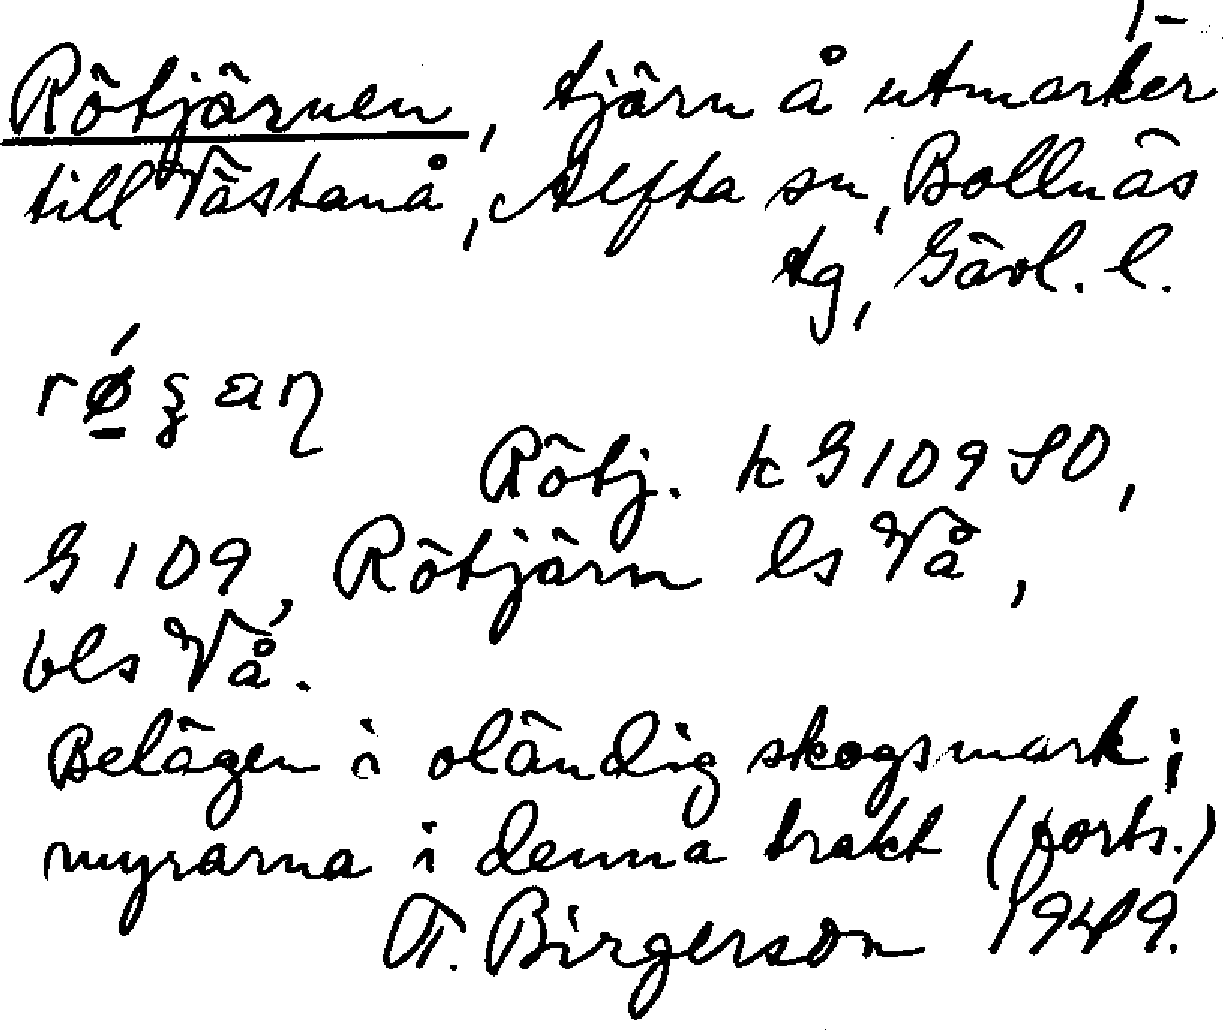 1-
Rötjärnen, tjärn å utmarker
till Västanå, Alfta sn, Bollnäs
tg, Gävl. l.
Rötj. k G 109 SO,
G 109, Rötjärn ls Vå,
bls Vå.
Belägen i oländig skogsmark;
myrarna i denna trakt (forts.)
T. Birgerson 1949.